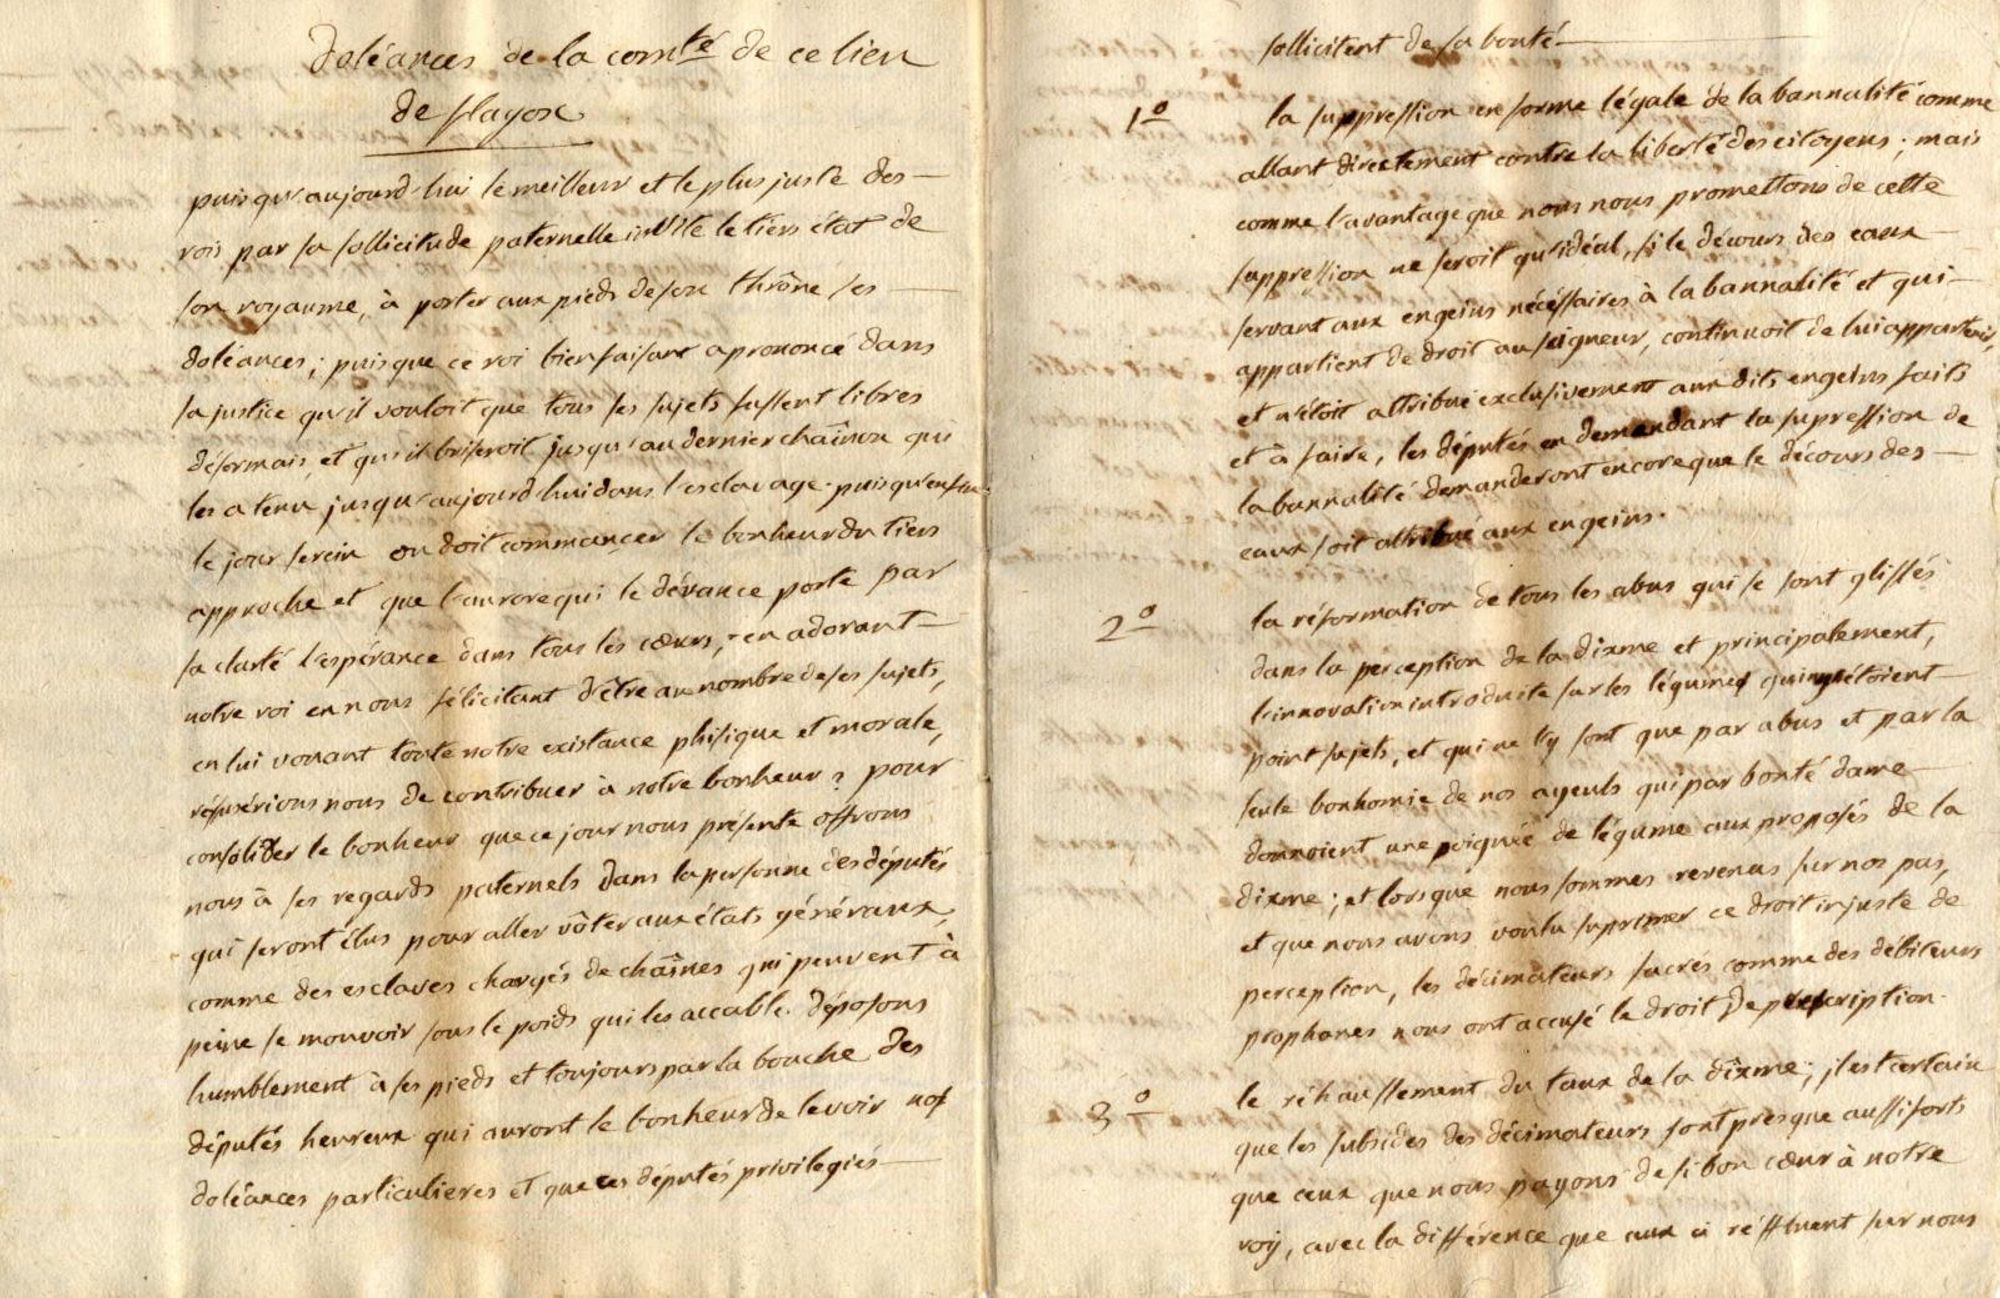 doléances de la com.té de ce lieu
de flayosc
puisqu'aujourd'hui le meilleur et le plus juste des
rois par sa sollicitude paternelle invite le tiers état de
son royaume, à porter aux pieds de son thrône ses
doléances; puisque ce roi bienfaisant a prononcé dans
sa justice qu'il vouloit que tous ses sujets fussent libres
désormais, et qu'il briseroit jusqu'au dernier chaînon qui
les a tenu jusqu'aujourd'hui dans l'esclavage. puisqu'enfin
le jour serein ou doit commançer le bonheur du tiers
approche et que l'aurore qui le dévance porte par
sa clarté l'espérance dans tous les cœurs; en adorant
notre roi en nous félicitant d'être au nombre de ses sujets,
en lui vouant toute notre existance phisique et morale,
réfusérions nous de contribuer à notre bonheur? pour
consolider le bonheur que ce jour nous présente offrons
nous à ses regards paternels dans la personne des députés
qui seront élus pour aller vôter aux états généraux,
comme des esclaves chargés de chaînes qui peuvent à
peine se mouvoir sous le poids qui les accable. déposons
humblement à ses pieds et toujours par la bouche des
députés heureux qui auront le bonheur de le voir nos
doléances particulieres et que ces députés privilegiés
sollicitent de sa bonté
1° la suppression en forme légale de la bannalité comme
allant directement contre la liberté des citoyens; mais
comme l'avantage que nous nous promettons de cette
suppression ne seroit qu'idéal, si le décours des eaux
servant aux engeins nécéssaires à la bannalité et qui
appartient de droit au seigneur, continuoit de lui appartenir,
et n'étoit attribué exclusivement aux dits engeins faits
et à faire, les députés en demandant la supression de
la bannalité demanderont encore que le décours des
eaux soit attribué aux engeins.
2° la réformation de tous les abus qui se sont glissés
dans la perception de la dixme et principalement,
l'innovation introduite sur les légumes qui n'y étoient
point sujets, et qui ne l'y sont que par abus et par la
seule bonhomie de nos ayeuls qui par bonté dame
donnoient une poignée de légume aux proposés de la
dixme; et lorsque nous sommes revenus sur nos pas,
et que nous avons voulu suprimer ce droit injuste de
perception, les décimateurs sacrés comme des débiteurs
prophanes nous ont accusé le droit de prescription.
3° le réhaussement du taux de la dîxme; il est certain
que les subsides des décimateurs sont presque aussi forts
que ceux que nous payons de si bon cœur à notre
roy, avec la différence que ceux ci réffluent sur nous